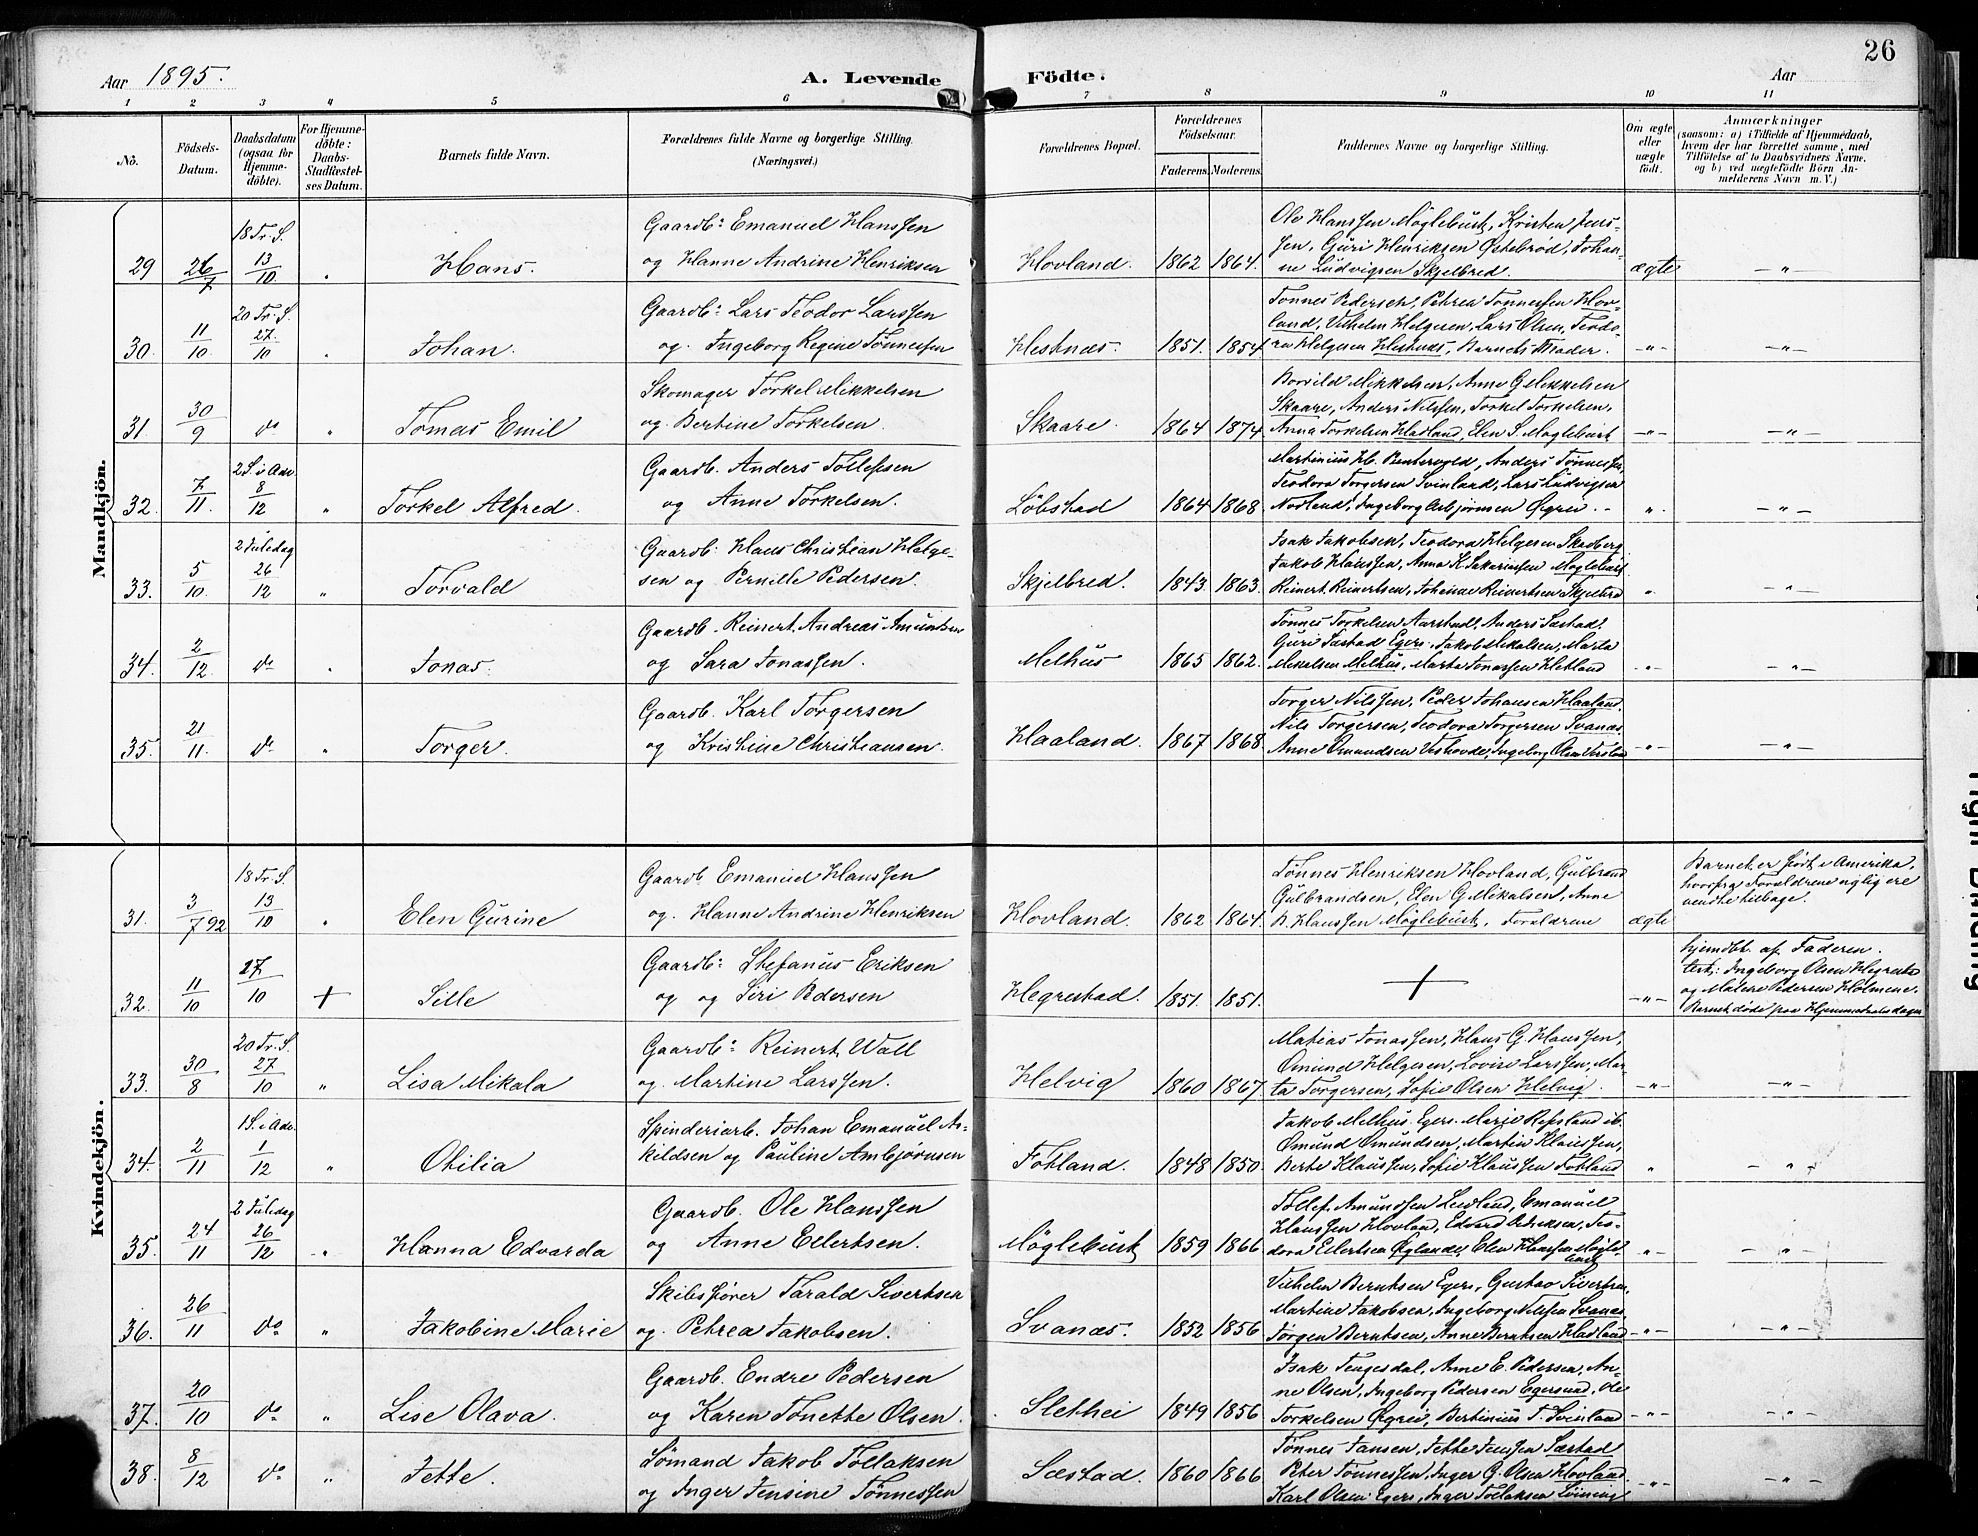 26
Aar 1895.
A. Levende Födte.
Aar
1 2 3 4 5 6 7 8 9 10 11
No.
Födsels-Datum.
Daabsdatum (ogsaa for Hjemme-döbte).
For Hjemme-döbte: Daabs-Stadfæstel-ses Datum.
Barnets fulde Navn.
Forældrenes fulde Navne og borgerlige Stilling. (Næringsvei.)
Forældrenes Bopæl.
Forældrenes Födselsaar.
Faderens. Moderens.
Faddernes Navne og borgerlige Stilling.
Om ægte eller uægte födt.
Anmærkninger
(saasom: a) i Tilfælde af Hjemmedaab, hvem der har forrettet samme, med Tilföielse af to Daabsvidners Navne. og b) ved uægtefödte Börn An-melderens Navn m. V.)
Mandkjön.
29 26/7 18 Tr. S. 13/10 " Hans.
Gaardb: Emanuel Hanssen
og Hanne Andrine Henriksen
Hovland. 1862 1864.
Ole Hanssen Møglebust, Kristen Jens-
sen, Guri Henriksen Østebrød, Johan-
ne Ludvigsen Skjelbred.
ægte — " —
30. 11/10. 20 Tr. S. 27./10 " Johan.
Gaardb: Lars Teodor Larssen
og. Ingeborg Regine Tønnessen
Hestnæs. 1851. 1854
Tønnes Pedersen, Petrea Tønnessen Hov-
land, Vilhelm Helgesen, Lars Olsen, Teodo-
ra Helgesen Hestnæs, Barnets Moder.
— " — — " —
31. 30/9 do " Tomas Emil
Skomager Torkel Mikkelsen
og. Bertine Torkelsen.
Skaare. 1864 1874.
Borvild Mikkelsen, Anne G Mikkelsen
Skaare, Anders Nilssen, Torkel Torkelsen,
Anna Torkelsen Hadland, Elen S. Møglebust
— " — — " —
32. 7/11. 2 S. i Adv. 8/12 " Torkel Alfred.
Gaardb. Anders Tollefsen
og Anne Torkelsen.
Löbstad 1864 1868.
Anders Tønnessen,
Teodora Torgersen Svinland, Lars Ludvigsen
Nodland, Ingeborg Asbjørnsen Øgrei.
" — " —
33. 5/10. 2 Juledag 26/12 " Torvald
Gaardb: Hans Christian Helge-
sen og Pernille Pedersen.
Skjelbred. 1843. 1863.
Isak Jakobsen, Teodora Helgesen Skadberg
Jakob Hanssen, Anna K. Sakariassen Møglebust.
Reinert Reinertsen, Johanne Reinertsen Skjelbred
" — " —
34. 2/12. do " Jonas.
Gaardb. Reinert Andreas Amundsen
og Sara Jonassen.
Melhus. 1865 1862.
Tønnes Torkelsen Aarstad, Anders Sæstad,
Guri Sæstad Egers. Jakob Mikalsen, Marta
Mikelsen Melhus, Marta Jonassen Hetland
" — " —
35. 21/11. do " Torger.
Gaardb. Karl Torgersen
og Kristine Christiansen.
Haaland. 1867 1868.
Torger Nilssen, Peder Johansen Haaland,
Nils Torgersen, Teodora Torgersen Svanæs
Anne Omundsen Veshovde, Ingeborg Olsen
— " — — " —
Kvindekjön.
31. 3/7 92 18 Tr. S. 13/10 " Elen Gurine
Gaardb Emanuel Hanssen
og. Hanne Andrine Henriksen
Hovland. 1862 1864.
Tønnes Henriksen Hovland, Gulbrand
Gulbrandsen, Elen G Mikalsen, Anne
B. Hanssen Møglebust, Forældrene
ægte
Barnet er født i Amerika,
hvorfra Forældrene nylig ere
vendte tilbage.
32. 11/10 27/10 + Sille
Gaardb: Stefanus Eriksen
og og Siri Pedersen
Hegrestad. 1851. 1851.
+
— " —
hjemdbt. af Faderen.
test: Ingeborg Olsen Hegrestad
og Malene Pedersen Holmene.
Barnet døde paa Hjemmedaabsdagen
33. 30/8 20 Tr. S. 27/10 " Lisa Mikala
Gaardb: Reinert Wall
og. Martine Larssen.
Helvig 1860 1867.
Matias Jonassen, Hans G. Hanssen,
Omund Helgesen, Lovise Larssen, Mar-
ta Torgersen, Sofie Olsen Helvig.
— " — — " —
34. 2/11 1 S. i Adv. 1/12 " Otilia
Spinderiarb. Johan Emanuel As-
kildsen og Pauline Ambjørnsen
Fotland. 1848 1850.
Jakob Melhus Egers. Marie Repsland ib.
Omund Omundsen, Martin Klaussen,
Berte Klaussen, Sofie Klaussen Fotland
" — " —
35. 24/11 2 Juledag 26/12 " Hanna Edvarda
Gaardb. Ole Hanssen
og Anne Eilertsen.
Møglebust 1859 1866
Tollef Amundsen Leidland, Emanuel
Hanssen Hovland, Edvard Didriksen, Teo-
dora Eilertsen Øglænde, Elen Hanssen Mögle-
bust
" — " —
36. 26/11 do " Jakobine Marie
Skibsfører Tarald Sivertsen
og. Petrea Jakobsen.
Svanæs. 1852 1856
Vilhelm Berntsen Egers, Gustav Sivertsen,
Martine Jakobsen, Ingeborg Nilsen Svanæs,
Jørgen Berntsen, Anne Berntsen Hadland
— " — — " —
37. 20/10 do " Lise Olava.
Gaardb. Endre Pedersen
og Karen Tonette Olsen.
Slethei 1849 1856
Isak Tengesdal, Anne E. Pedersen, An-
ne Olsen, Ingeborg Pedersen Egersund, Ole
Torkelsen Øgrei, Bertinius T. Svinland
— " — — " —
38. 8/12 do " Jette.
Sømand Jakob Tollaksen
og Inger Jensine Tønnessen
Sæstad. 1860 1866
Tønnes Jansen, Jette Jenssen Sæstad
Peter Tønnessen, Inger G. Olsen Hovland.
Karl Olsen Egers, Inger Tollaksen
" — " —